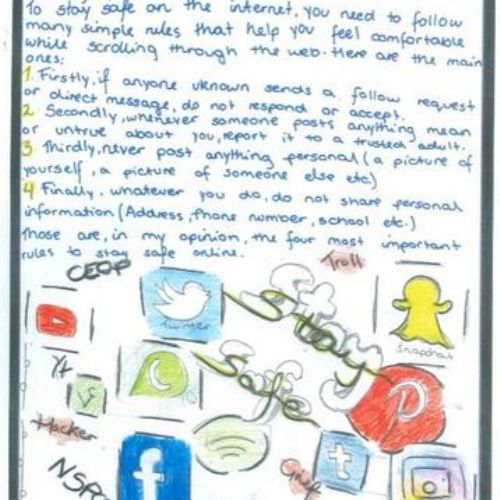 To stay safe on the internet, you need to follow
many simple rules that help you feel comfortable
while scrolling through the web. Here are the main
ones:
1 Firstly, if anyone uknown sends a follow request
or direct message, do not respond or accept.
2 Secondly, whenever someone posts anything mean
or untrue about you, report it to a trusted adult.
3 Thirdly, never post anything personal (a picture of
yourself, a picture of someone else etc)
4 Finally, whatever you do, do not share personal
information (Address, Phone number, school etc.)
Those are, in my opinion, the four most important
rules to stay safe online.
CEOP
Troll
Twitter
Stay
Snapchat
Yt
Safe
Hacker
f
t